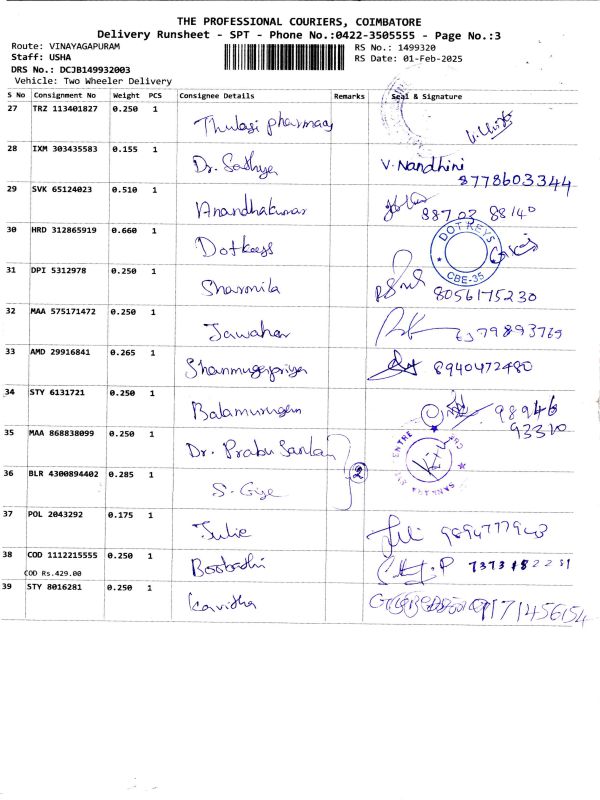 THE PROFESSIONAL COURIERS, COIMBATORE
Delivery Runsheet - SPT - Phone No.:0422-3505555 - Page No.:3
Route: VINAYAGAPURAM RS No.: 1499320
Staff: USHA RS Date: 01-Feb-2025
DRS No.: DCJB149932003
Vehicle: Two Wheeler Delivery
S No Consignment No Weight PCS Consignee Details Remarks Seal & Signature
27 TRZ 113401827 0.250 1 Thulasi pharmacy
28 IXM 303435583 0.155 1 Dr. Sathya V. Nandhini
8778603344
29 SVK 65124023 0.510 1 Anandhakumar 88703 88140
30 HRD 312865919 0.660 1 Dotkeys DOT KEYS CBE-35
31 DPI 5312978 0.250 1 Sharmila 8056175230
32 MAA 575171472 0.250 1 Jawahar 6379893765
33 AMD 29916841 0.265 1 Shanmugapriya 8940472480
34 STY 6131721 0.250 1 Balamurugan 98946
93310
35 MAA 868838099 0.250 1 Dr. Prabu Sankar
36 BLR 4300894402 0.285 1 2
37 POL 2043292 0.175 1 Julie 9894777943
38 COD 1112215555 0.250 1 Boobathi 7373182231
COD Rs.429.00
39 STY 8016281 0.250 1 Kavitha 9171456154